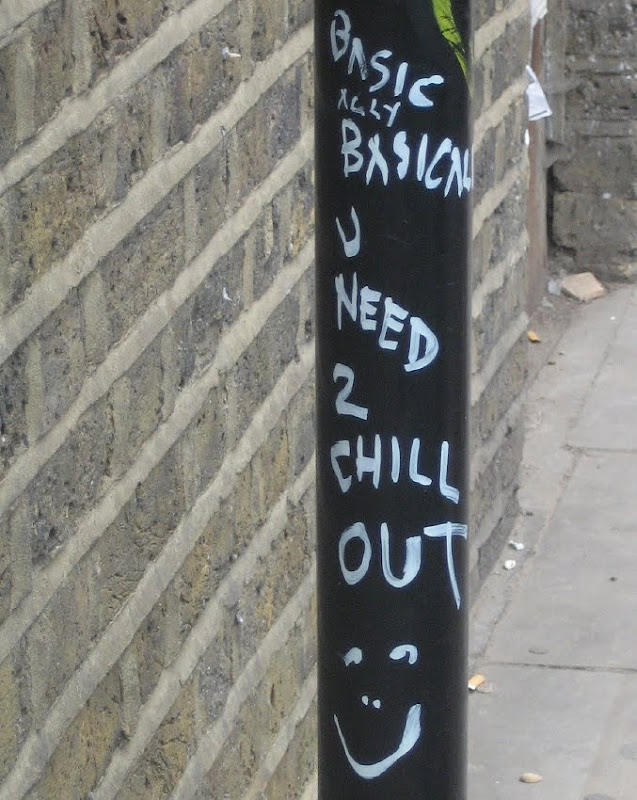 BASIC
ALLY
BASICAL
U
NEED
2
CHILL
OUT